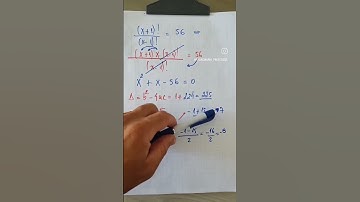 (x+1)! / (x-1)! = 56 ⇒
(x+1)x(x-1)! / (x-1)! = 56
x² + x - 56 = 0
Δ = b² - 4ac = 1 + 224 = 225
-1+15 7
-1-15 / 2 = -16 / 2 = -8